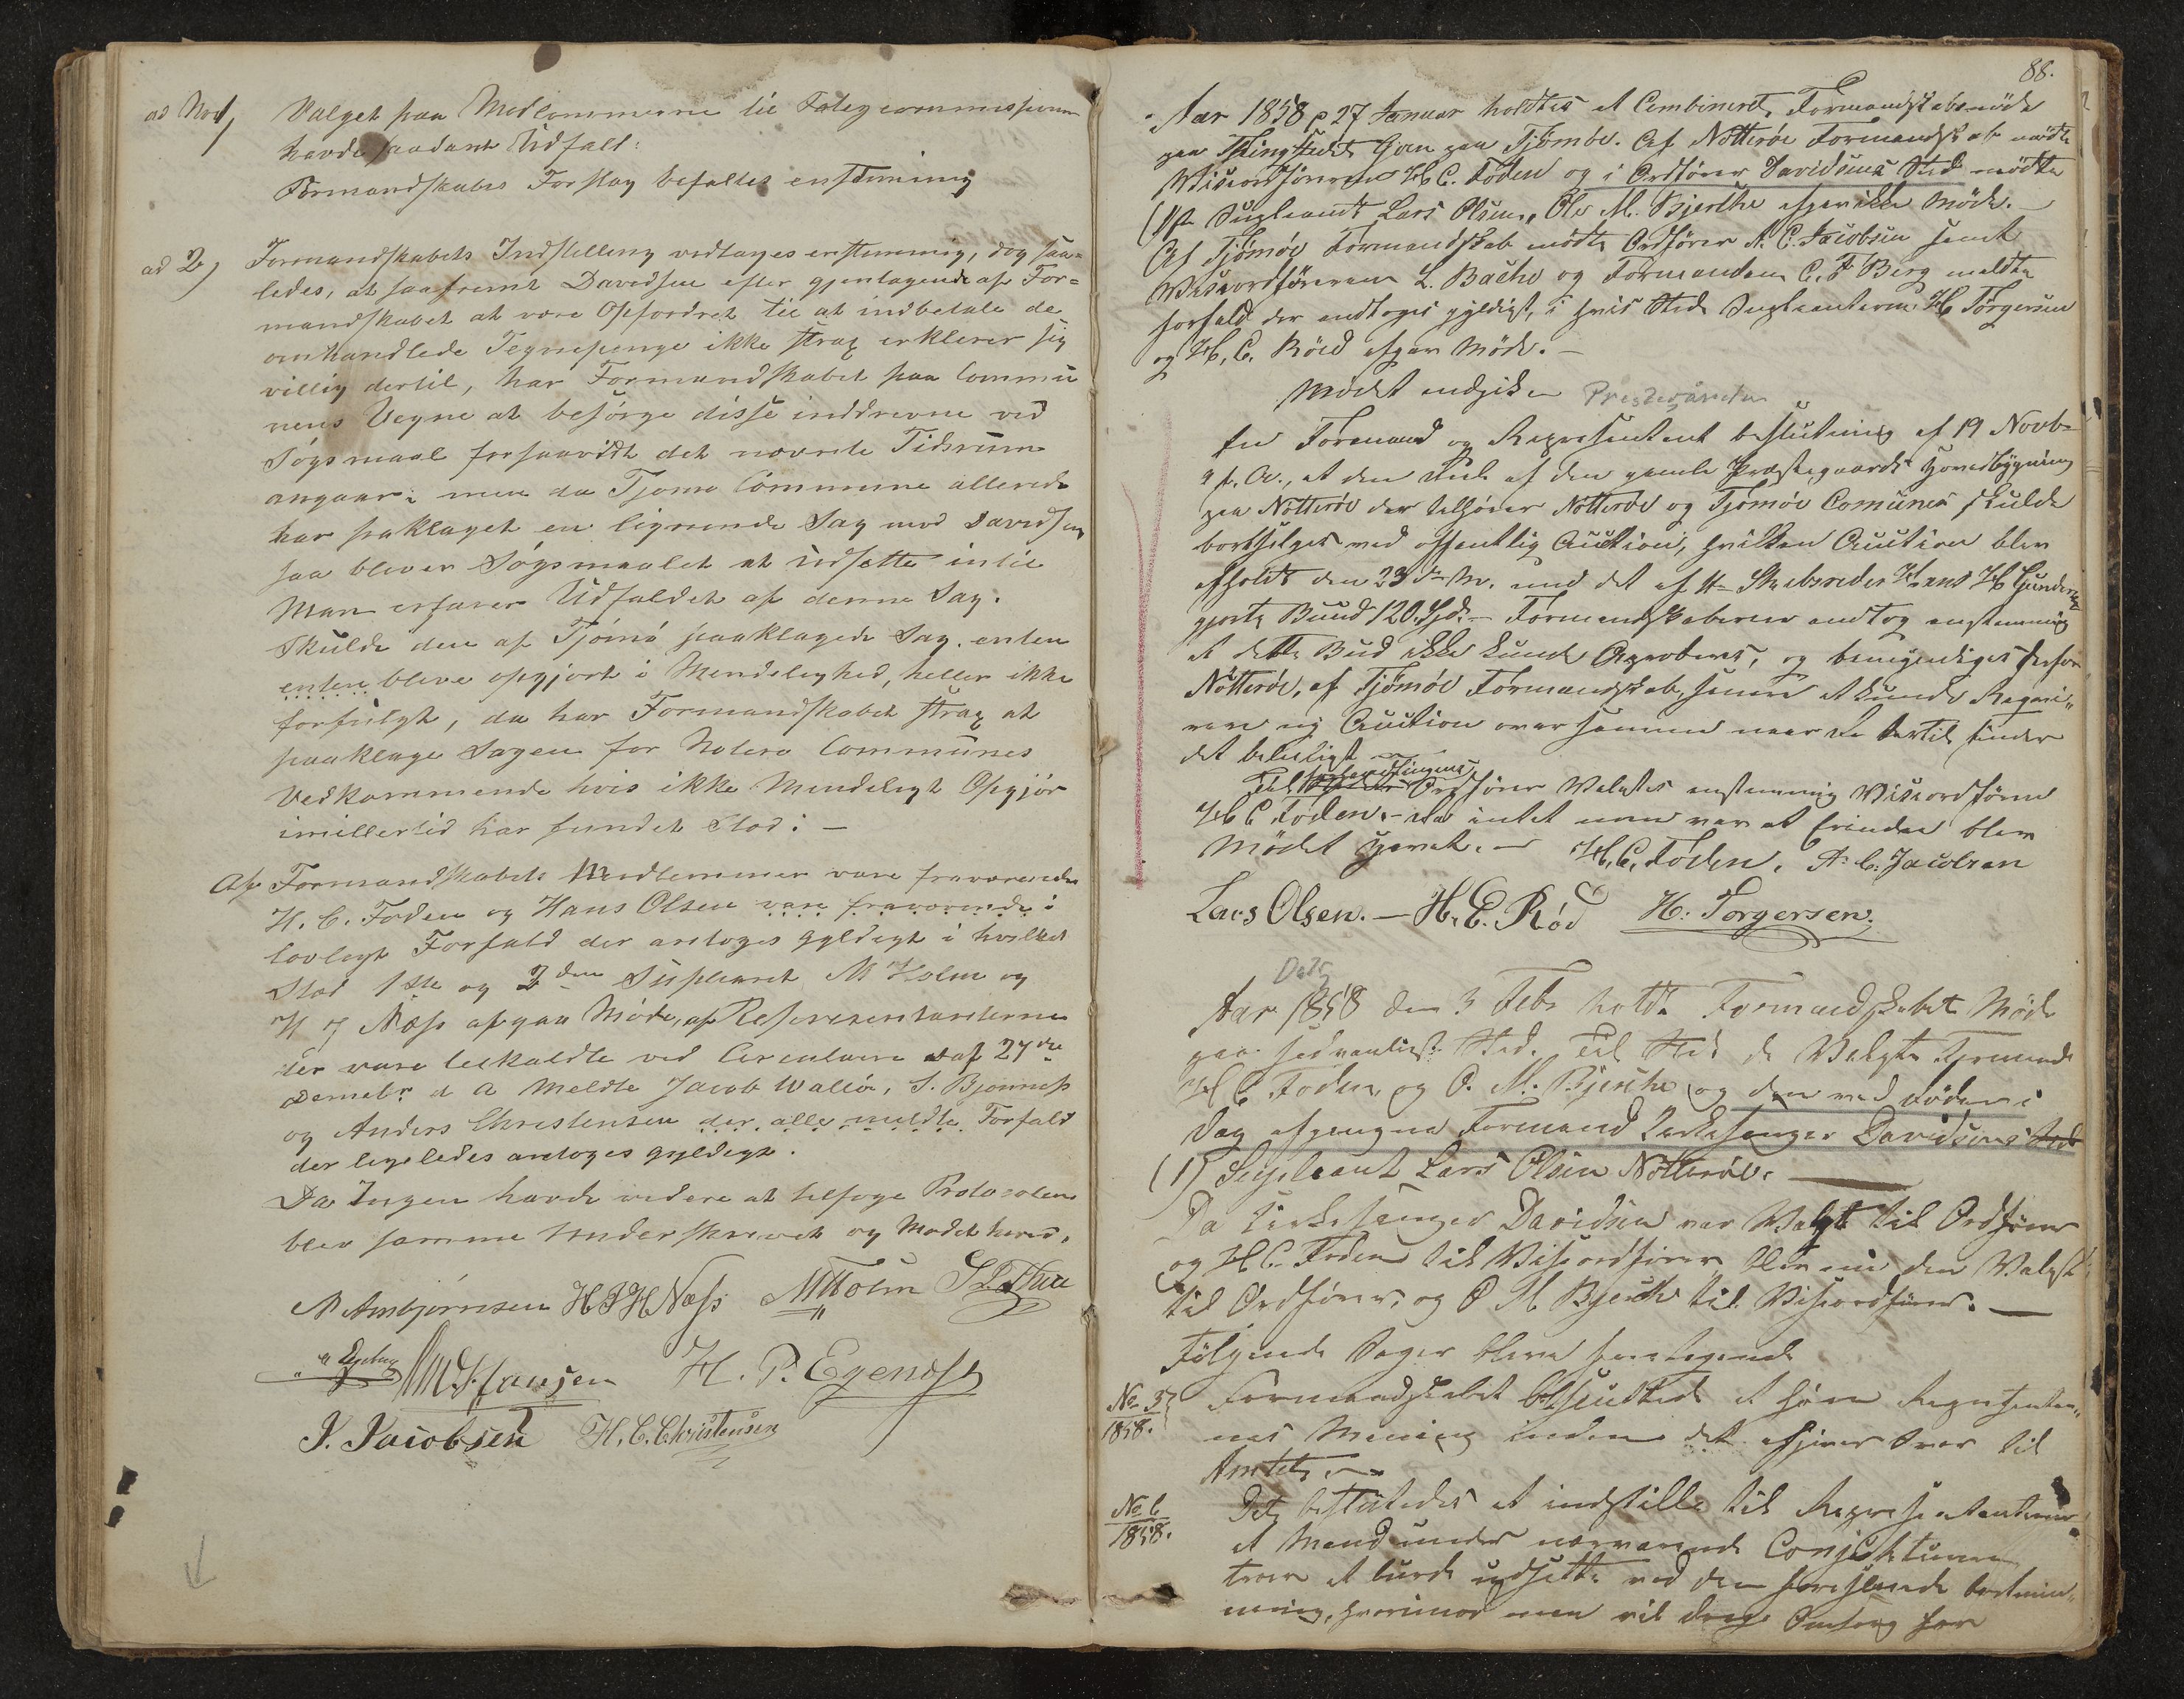 ad No 1,
Valget paa Medlemmerne til Fategcommissionen
havde saadant Udfald:
Formandskabets Forslag befaltes enstemmig
ad 2,
Formandskabets Indstilling vedtages enstemmig, dog saa=
ledes, at saafremt Davidsen efter gjentagende af For=
mandskabet at være Opfordret til at indbetale de
omhandlede Tegnepenge ikke strax erklerer sig
villig dertil, har Formandskabet paa Commu
nens Vegne at besørge disse inddrevne ved
Søgsmaal forsaavidt det nævnte Tidsrum
angaar; men da Tjømø Commune allerede
har paaklaget en lignende Sag mod Davidsen
saa bliver Søgsmaalet at udsætte intil
Man erfarer Udfaldet af denne Sag.
Skulde den af Tjømø paaklagede Sag enten
enten blive opgjort i Mindelighed, heller ikke
forfulgt, da har Formandskabet strax at
paaklage Sagen for Nøterø Communes
Vedkommende hvis ikke Mindeligt Opgjør
imillertid har fundet Sted. —
Af Formandskabets Medlemmer vare fraværende
H. C. Foden og Hans Olsen vare fraværende i
lovligt Forfald der antoges gyldigt i hvilket
Sted 1ste og 2den Supleant M Holm og
H J Næss afgav Møde, af Representanterne
der vare tilkaldte ved Circulaire af 27de
Decmbr d A meldte Jacob Walløe, S. Bjønness
og Anders Christensen der alle meldte Forfald
der ligeledes antoges gyldigt.
Da Ingen havde videre at tilføge Protocolen
blev samme Underskrevet og Mødet hævet.
N Ambjørnsen H J H Næss M Holm
M. Hansen H. P. Egendsen
J. Jacobsen H. C. Christensen
88.
Aar 1858 d 27 Januar holdtes et Combineret Formandskabsmøde
paa Thingstedet Hjem paa Tjømøe. Af Nøtterøe Formandskab mødte
Viseordføreren H C. Foden og i Ordfører Davidsens Sted mødte
1ste Supleandt Lars Olsen, Ole M. Bjerche afgav ikke Møde. —
Af Tjømøe Formandskab mødte Ordfører A. C. Jacobsen samt
Viseordføreren L. Bache og Formanden C. F Berg meldte
forfald der andtoges gyldigt, i hvis Sted Supleanterne H Torgersen
og H. C. Röed afgav Møde. —
Mødet angik en Prestegården
En Formand og Representant beslutning af 19 Novbr
f. A., at den Deel af den gamle Præstegaards Hovedbygning
paa Nøtterøe der tilhører Nøtterøe og Tjømøe Comuner skulde
bortselges ved offentlig Auction, hvilken Auction blev
afholdt den 23 d. M. med det af Hr Skibsreder H Gundersen
gjorte Buud 120 Spd. — Formandskaberne andtog enstemmig
at dette Bud ikke kunde Aproberes, og bemyndiges derfor
Nøtterøe, af Tjømøe Formandskab, senere at kunde Reqvi„
rere ny Auction over samme naar de dertil finder
det beleiligt —
Til forhandlingens Ordfører Valgtes enstemmig Viseordfører
H C Foden. — Da intet mere var at Erindre blev
Mødet hævet. — H. C. Foden. A. C. Jacobsen
Lars Olsen. — H. C. Röd H. Torgersen.
Aar 1858 den 3 Febr holdt Formandskabet Møde
paa sedvanligt Sted. Til Sted de Valgte Formænd
H C Foden og O. M. Bjerche og den ved døden i
Dag afgangne Formand Kirkesanger Davidsens Sted
(1) Supleant Lars Olsen Nøtterøe. —
Da Kirkesanger Davidsen var Valgt til Ordfører
og H C. Foden til Viseordfører blev nu den Valgt
til Ordfører, og O M Bjerche til Viseordfører. —
Følgende Sager bleve foretagende
No 3
1858.
Formandskabet besluttede at høre Representan„
nes Mening inden det afgiver Svar til
Amtet. —
No 6
1858.
Det besluttedes at indstille til Representanterne
at Mand under nærværende Conjekturer
troer at burde udsætte med den foreslaaede bestem„
ning, hvorimod man vil drage Omsorg for